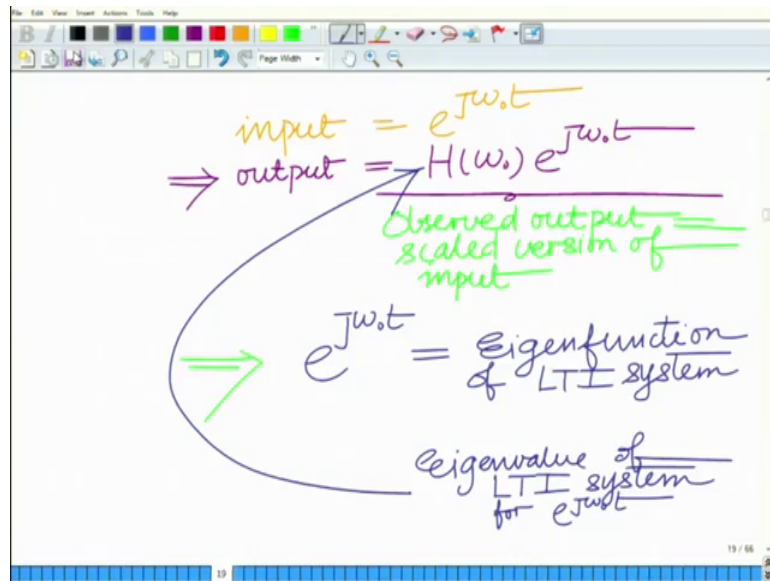 File Edit View Insert Actions Tools Help
B I
Page Width
input = e^{jω₀t}
⇒ output = H(ω₀) e^{jω₀t}
Observed output =
scaled version of
input
⇒ e^{jω₀t} = Eigenfunction
of LTI system
Eigenvalue of
LTI system
for e^{jω₀t}
19 / 66
19